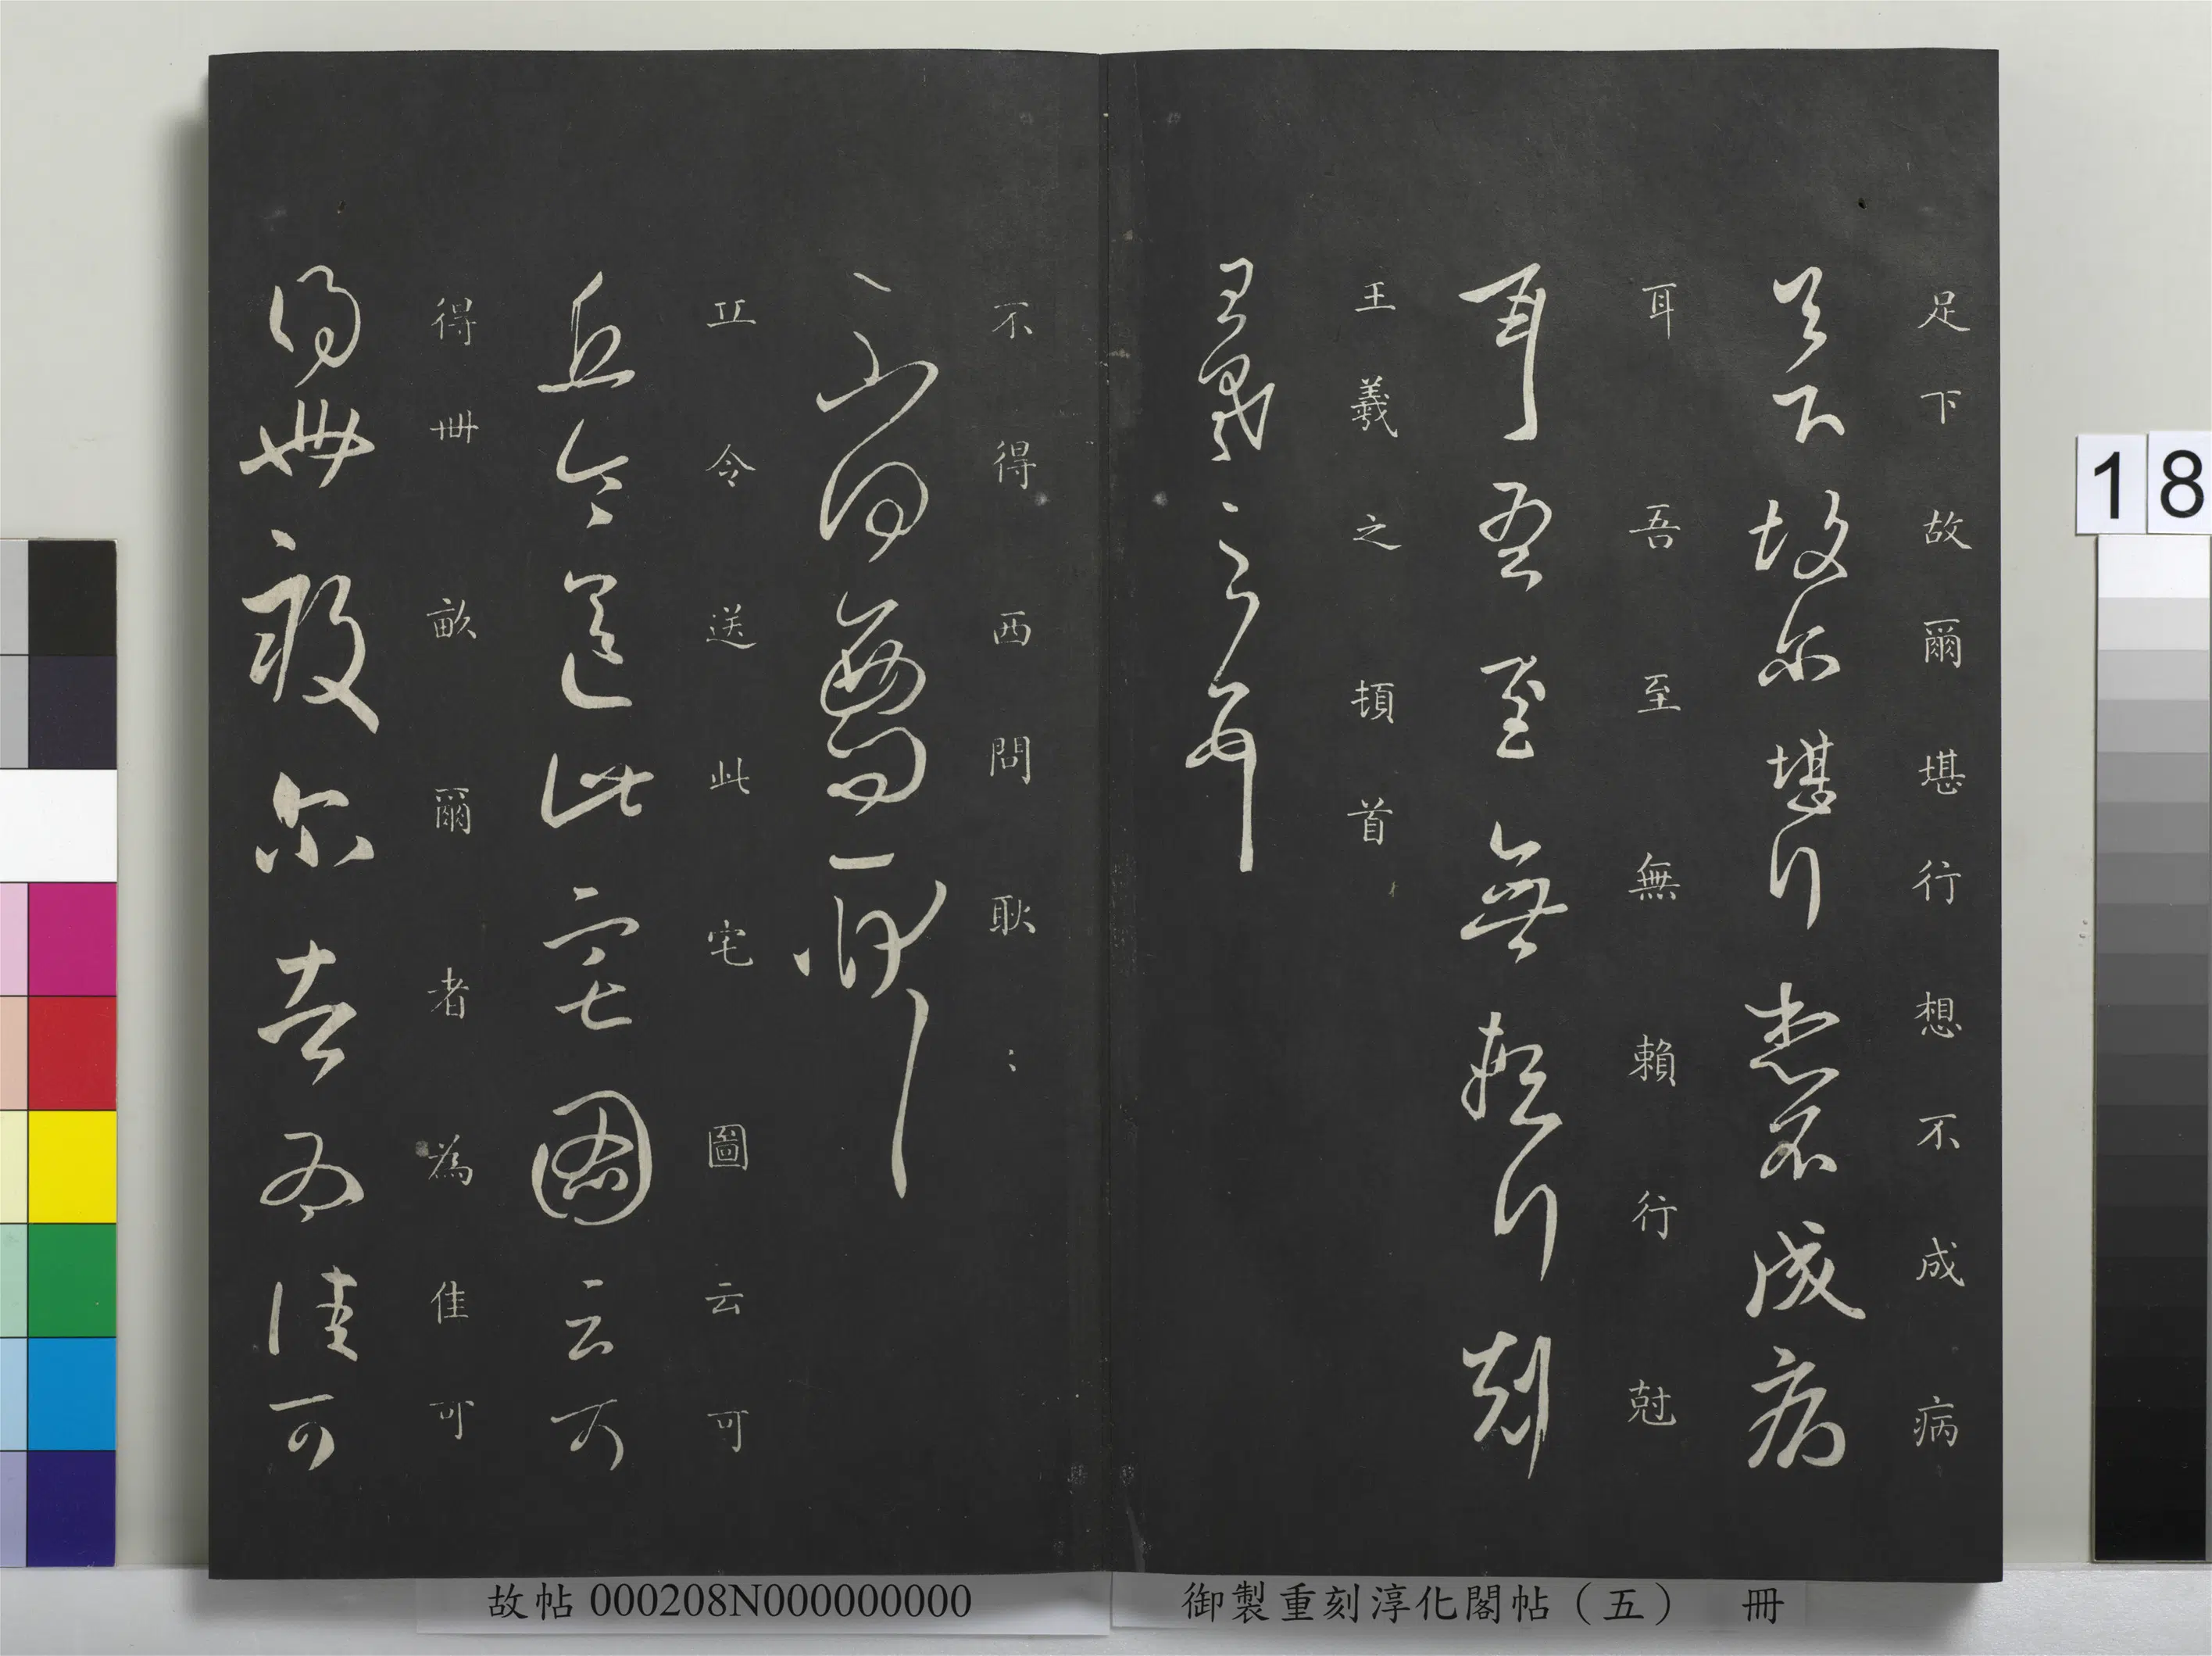 足下故爾堪行想不成病
足下故尔堪行想不成病
耳吾至無賴行尅
耳吾至無賴行尅
王羲之頓首
王羲之頓首
不得西問耿〻
不得西問耿〻
丘令送此宅圖云可
丘令送此宅圖云可
得卌畝爾者為佳可
得卌畝尔者為佳可
18
御製重刻淳化閣帖（五） 冊
故帖 000208N000000000